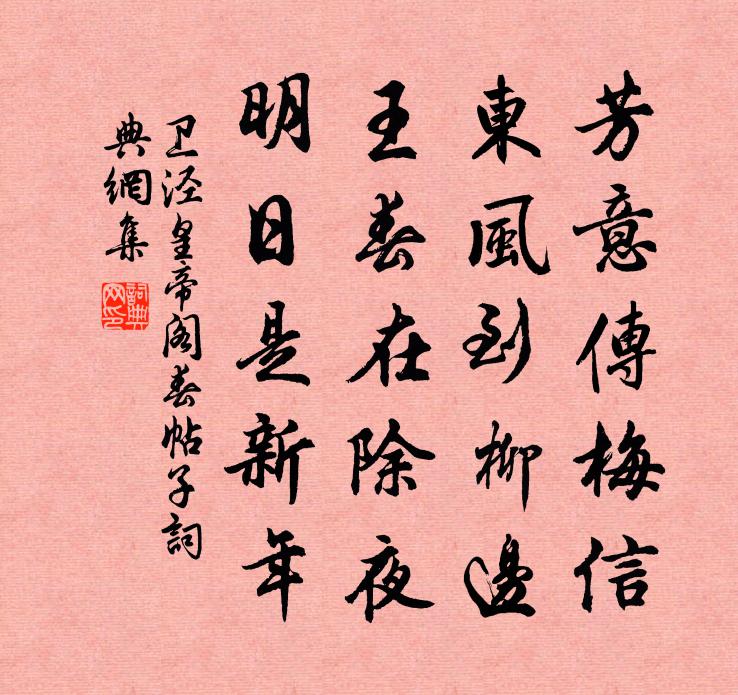 芳意傳梅信
東風到柳邊
王春在除夜
明日是新年
卫泾皇帝阁春帖子詞
典網集
詞典
网印